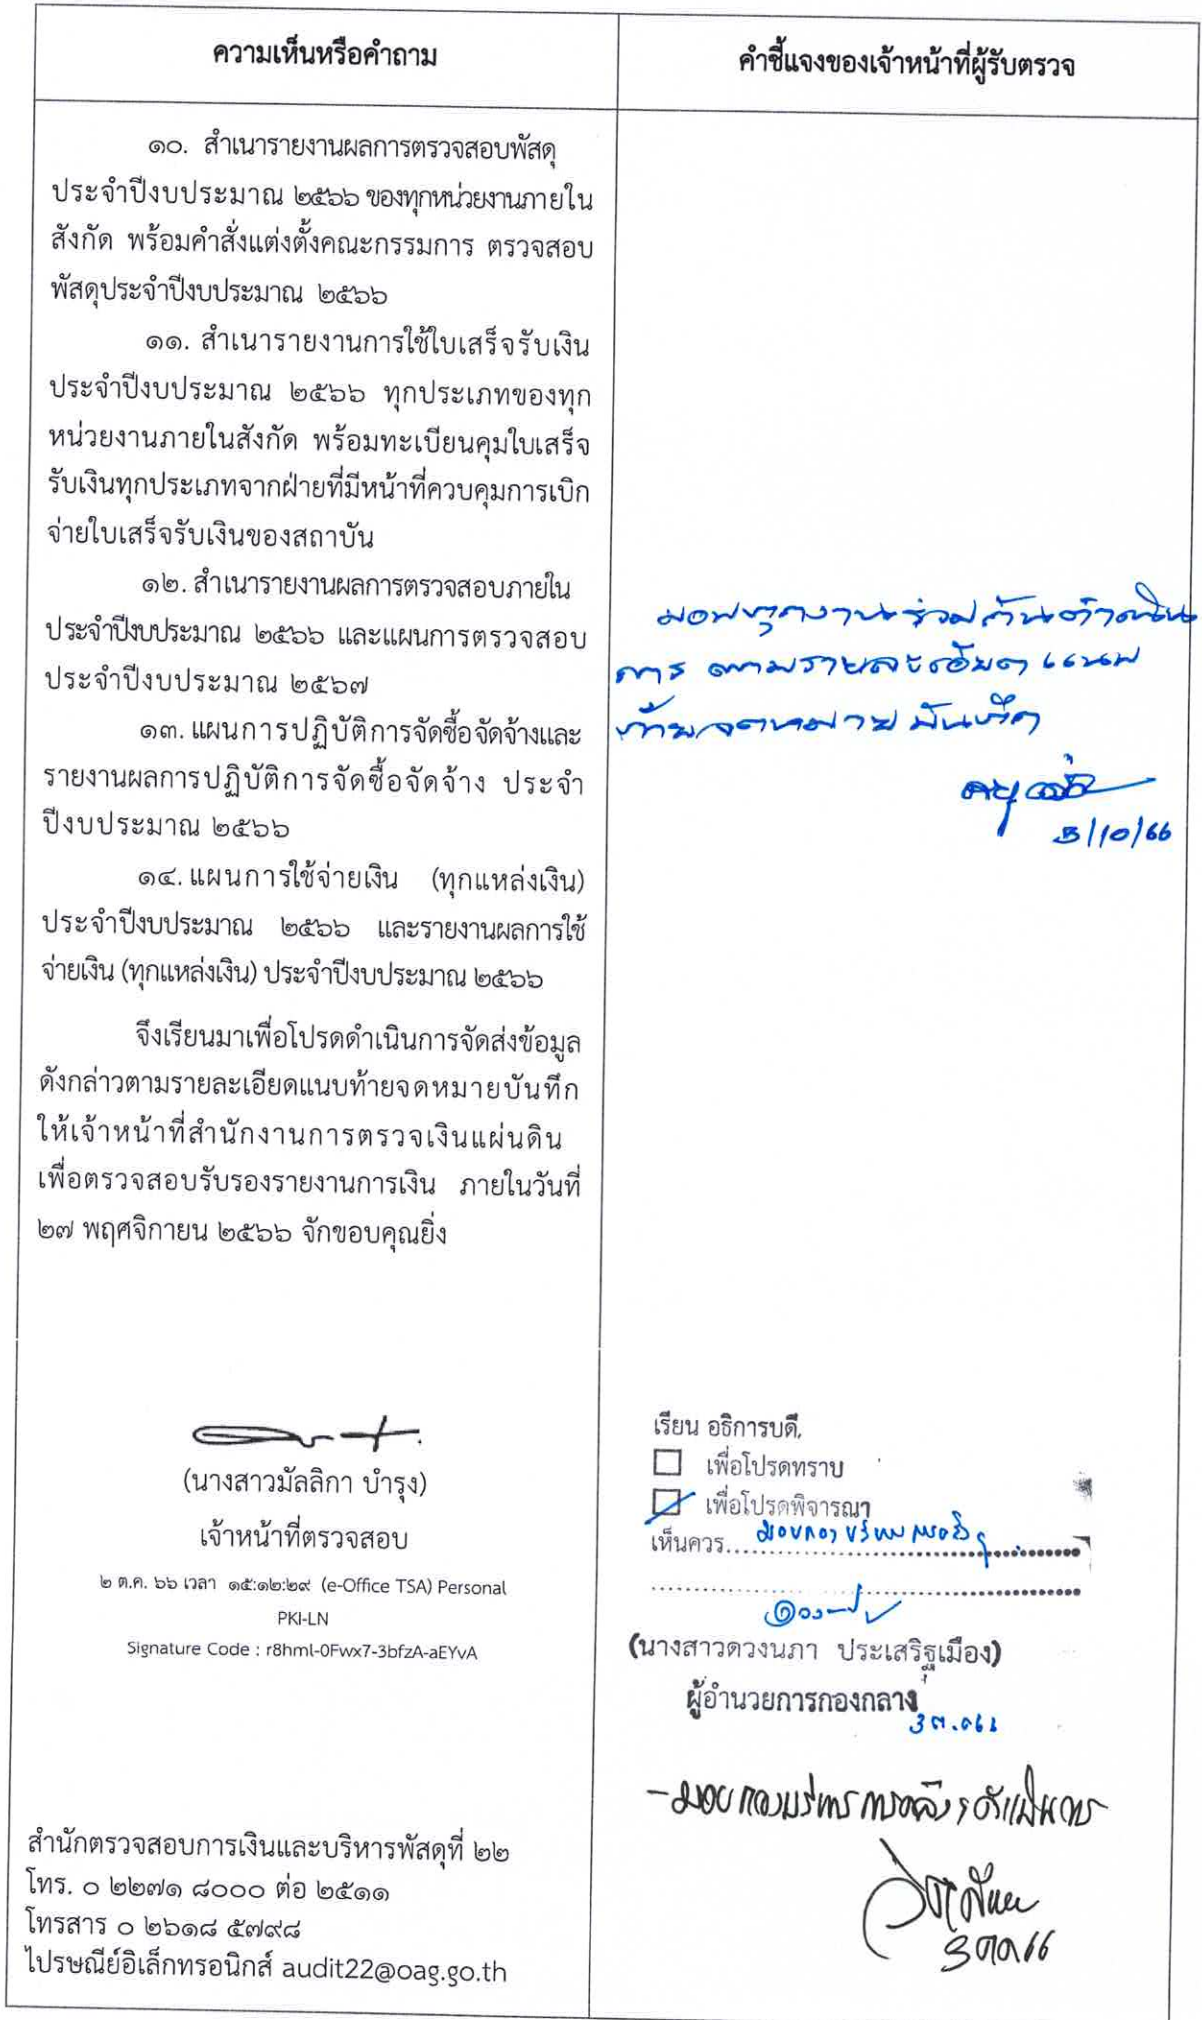 ความเห็นหรือคำถาม
คำชี้แจงของเจ้าหน้าที่ผู้รับตรวจ
๑๐. สำเนารายงานผลการตรวจสอบพัสดุ
ประจำปีงบประมาณ ๒๕๖๖ ของทุกหน่วยงานภายใน
สังกัด พร้อมคำสั่งแต่งตั้งคณะกรรมการ ตรวจสอบ
พัสดุประจำปีงบประมาณ ๒๕๖๖
๑๑. สำเนารายงานการใช้ใบเสร็จรับเงิน
ประจำปีงบประมาณ ๒๕๖๖ ทุกประเภทของทุก
หน่วยงานภายในสังกัด พร้อมทะเบียนคุมใบเสร็จ
รับเงินทุกประเภทจากฝ่ายที่มีหน้าที่ควบคุมการเบิก
จ่ายใบเสร็จรับเงินของสถาบัน
๑๒. สำเนารายงานผลการตรวจสอบภายใน
ประจำปีงบประมาณ ๒๕๖๖ และแผนการตรวจสอบ
ประจำปีงบประมาณ ๒๕๖๗
๑๓. แผนการปฏิบัติการจัดซื้อจัดจ้างและ
รายงานผลการปฏิบัติการจัดซื้อจัดจ้าง ประจำ
ปีงบประมาณ ๒๕๖๖
๑๔. แผนการใช้จ่ายเงิน (ทุกแหล่งเงิน)
ประจำปีงบประมาณ ๒๕๖๖ และรายงานผลการใช้
จ่ายเงิน (ทุกแหล่งเงิน) ประจำปีงบประมาณ ๒๕๖๖
จึงเรียนมาเพื่อโปรดดำเนินการจัดส่งข้อมูล
ดังกล่าวตามรายละเอียดแนบท้ายจดหมายบันทึก
ให้เจ้าหน้าที่สำนักงานการตรวจเงินแผ่นดิน
เพื่อตรวจสอบรับรองรายงานการเงิน ภายในวันที่
๒๗ พฤศจิกายน ๒๕๖๖ จักขอบคุณยิ่ง
(นางสาวมัลลิกา บำรุง)
เจ้าหน้าที่ตรวจสอบ
๒ ต.ค. ๖๖ เวลา ๑๕:๑๒:๒๙ (e-Office TSA) Personal
PKI-LN
Signature Code : r8hml-0Fwx7-3bfzA-aEYvA
สำนักตรวจสอบการเงินและบริหารพัสดุที่ ๒๒
โทร. ๐ ๒๒๗๑ ๘๐๐๐ ต่อ ๒๕๑๑
โทรสาร ๐ ๒๖๑๘ ๕๗๙๘
ไปรษณีย์อิเล็กทรอนิกส์ audit22@oag.go.th
มอบทุกงานร่วมกันดำเนิน
การ ตามรายละเอียด แนบ
ท้ายจดหมายบันทึก
3/10/66
เรียน อธิการบดี,
เพื่อโปรดทราบ
เพื่อโปรดพิจารณา
เห็นควร.... มอบกองบริหารการคลัง
(นางสาวดวงนภา ประเสริฐเมือง)
ผู้อำนวยการกองกลาง
3 ต.ค.66
- มอบกองบริหารการคลังฯ ดำเนินการ
3 ตค 66